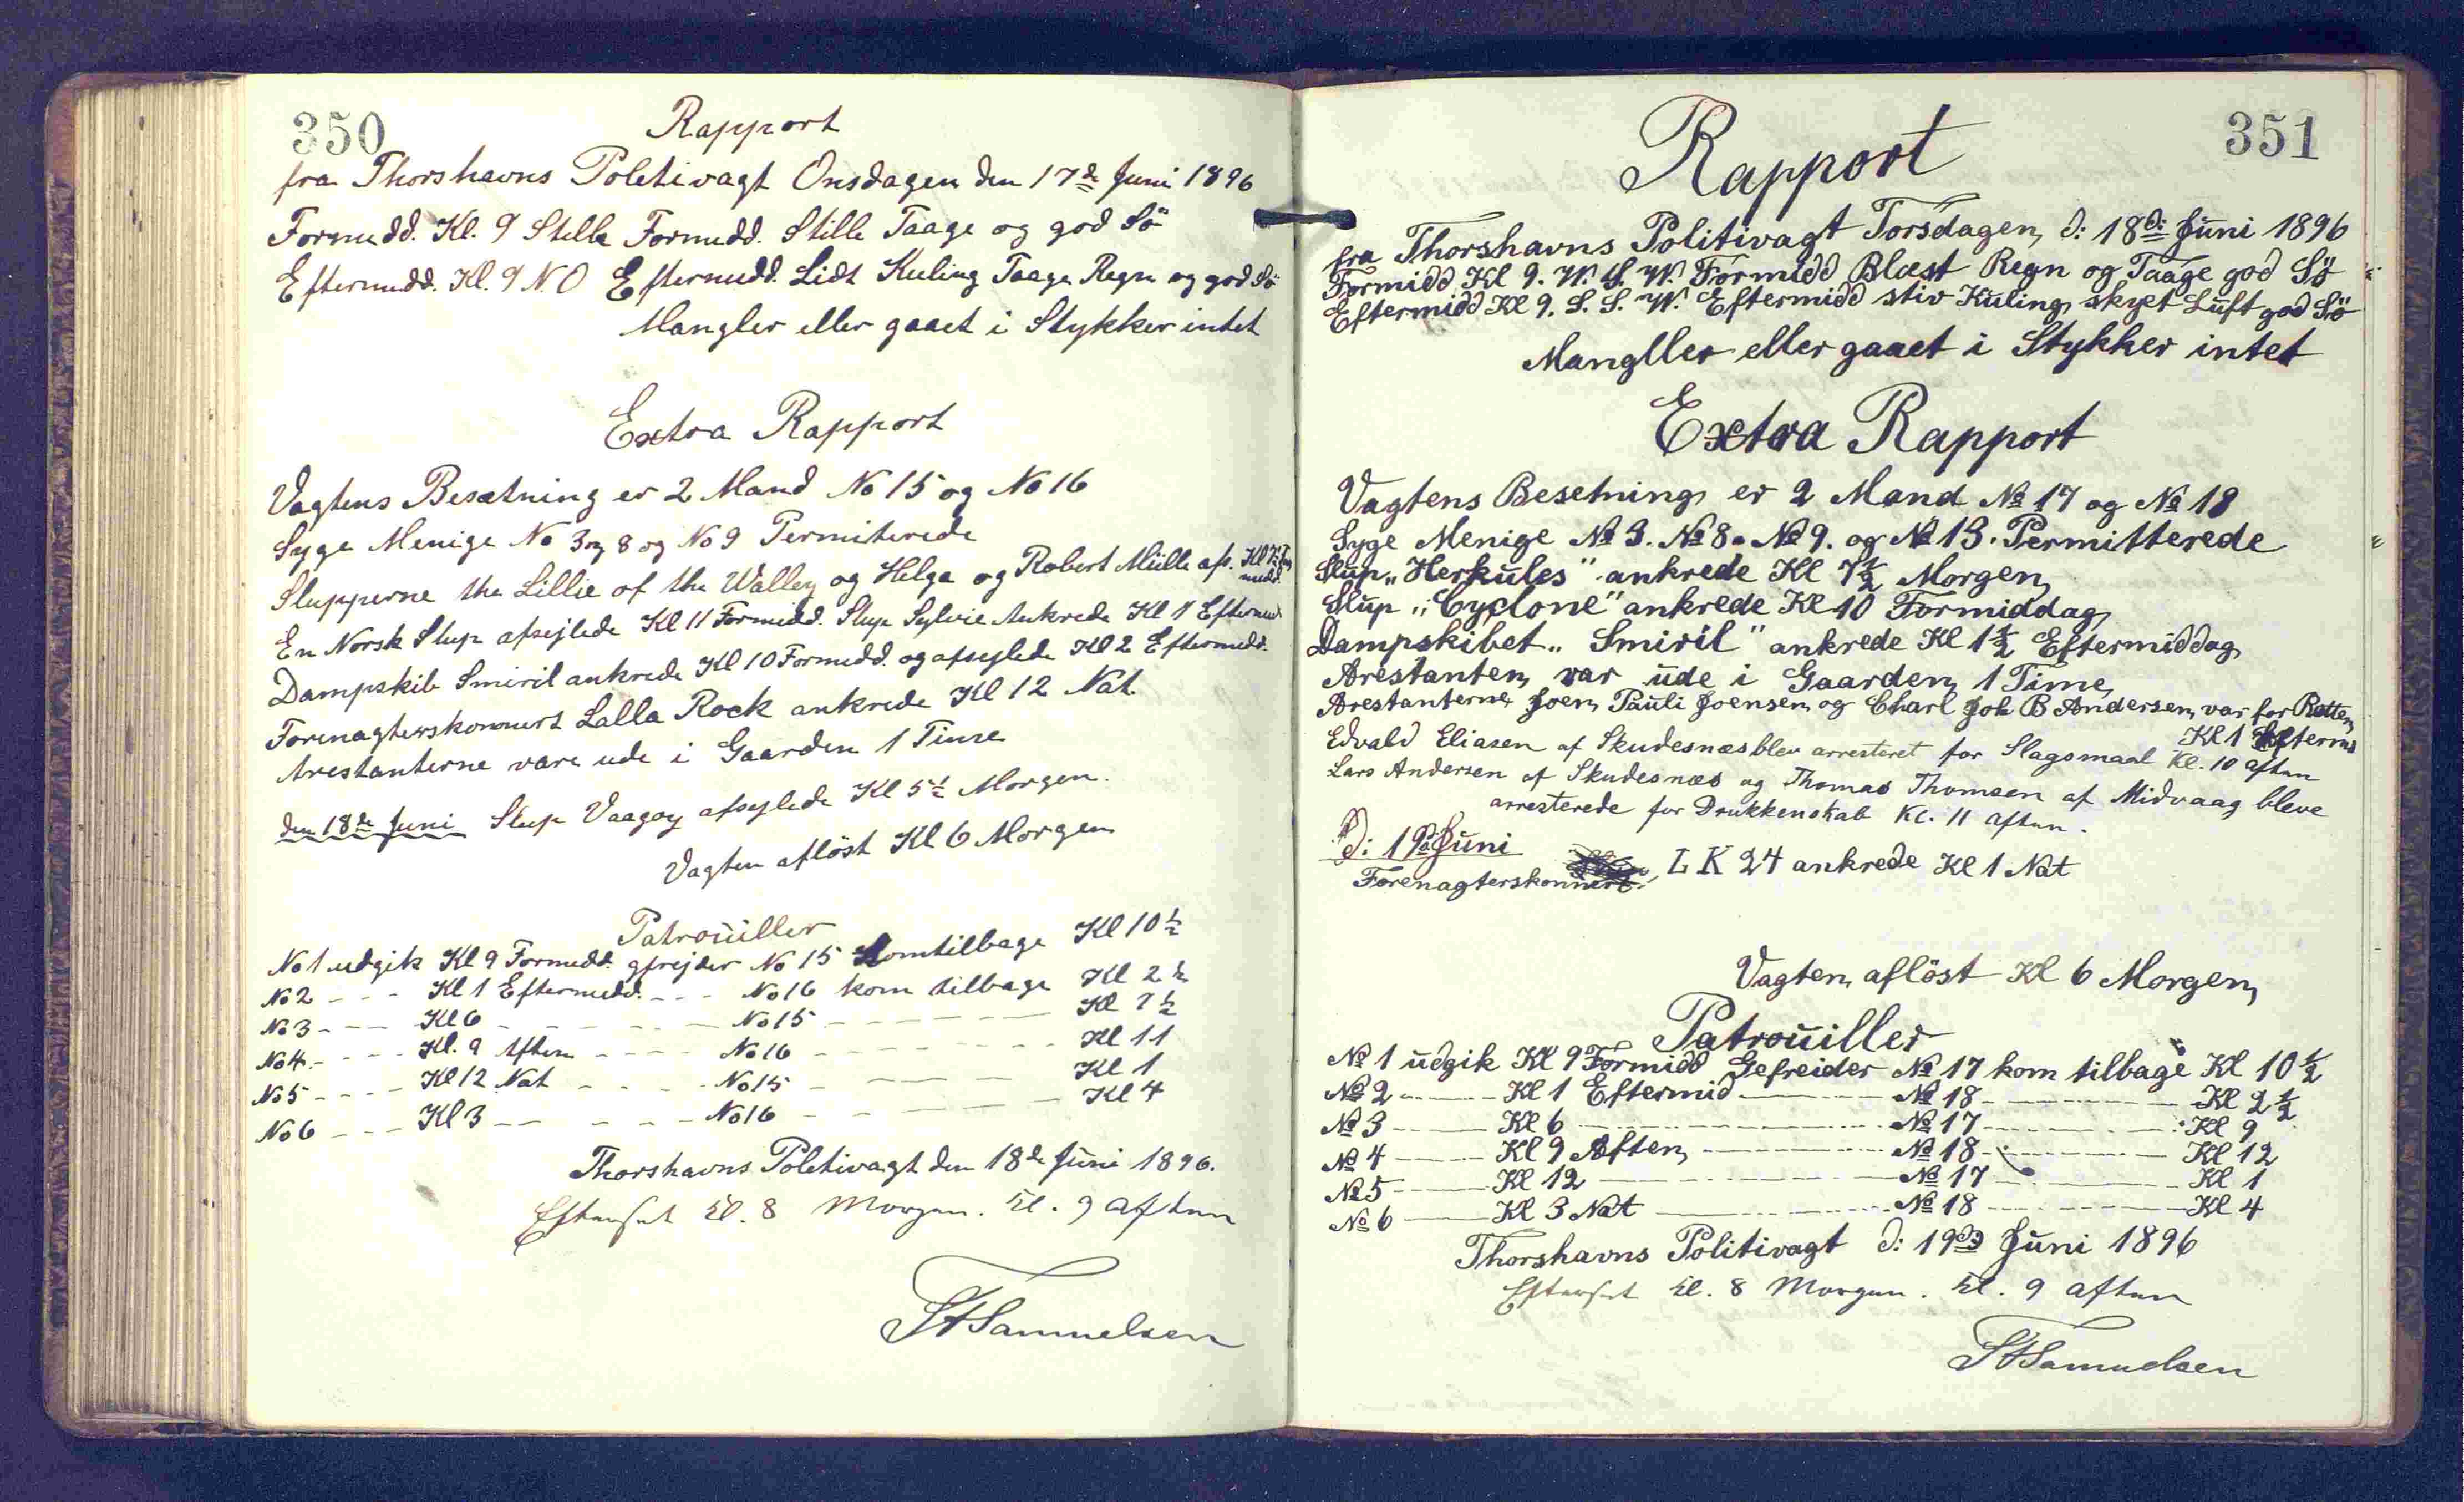 350
Rapport
fra Thorshavns Politivagt Onsdagen den 17de Juni 1896
Formidd. Kl. 9 Stille Formidd. Stille Taage og god Sö
Eftermidd. Kl. 9 N O Eftermidd. Lidt Kuling Taage Regn og god Sö
Mangler eller gaaet i Stykker intet
Extra Rapport
Vagtens Besætning er 2 Mand No 15 og No 16
Syge Menige No 3 og 8 og No 9 Permiterede
Slupperne the Lillie of the Walley og Helga og Robert Mülle afs. Kl
midd.
En Norsk Slup afsejlede Kl 11 Formidd. Slup Sylvie Ankrede Kl 1 Eftermidd.
Dampskib Smiril ankrede Kl 10 Formidd. og afsejlede Kl 2 Eftermidd.
Forenagterskonnert Lalla Rock ankrede Kl 12 Nat.
Arestanterne vare ude i Gaarden 1 Time
den 18de Juni Slup Vaagoy afsejlede Kl 5½ Morgen.
Vagten aflöst Kl 6 Morgen
Patrouiller
No 1 udgik Kl 9 Formidd. gfrejder No 15 Komtilbage Kl 10½
No 2 - - - Kl 1 Eftermidd. - - - No 16 kom tilbage Kl 2½
No 3 - - - Kl 6 - - - No 15 - - - Kl 7½
No 4 - - - Kl. 9 Aften - - - No 16 - - - Kl 11
No 5 - - - Kl 12 Nat - - - No 15 - - - Kl 1
No 6 - - - Kl 3 - - - No 16 - - - Kl 4
Thorshavns Politivagt den 18de Juni 1896.
Efterset Kl. 8 Morgen. Kl. 9 Aften
Samuelsen
351
Rapport
fra Thorshavns Politivagt Torsdagen, d: 18de Juni 1896
Formidd Kl 9. W. S. W. Formidd Blæst Regn og Taage god Sö
Eftermidd Kl 9. S. S. W. Eftermidd stiv Kuling skyet Luft god Sö
Mangller eller gaaet i Stykker intet
Extra Rapport
Vagtens Besetning er 2 Mand No 17 og No 18
Syge Menige No 3. No 8. No 9. og No 13. Permitterede
Slup „Herkules" ankrede Kl 7½ Morgen
Slup „Cyclone" ankrede Kl 10 Formiddag
Dampskibet „Smiril" ankrede Kl 1½ Eftermiddag
Arestanten var ude i Gaarden 1 Time
Arestanterne Joen Pauli Joensen og Charl Joh B Andersen var for Retten
Kl 1 Efterm
Edvald Eliasen af Skudesnæs blev arresteret for Slagsmaal Kl. 10 Aften
Lars Andersen af Skudesnæs og Thomas Thomsen af Midvaag bleve
arresterede for Drukkenskab Kl. 11 Aften.
D: 19de Juni
Forenagterskonnert L K 24 ankrede Kl 1 Nat
Vagten aflöst Kl 6 Morgen
Patrouiller
No 1 udgik Kl 9 Formidd Gefreider No 17 kom tilbage Kl 10½
No 2 - - - Kl 1 Eftermid - - - No 18 - - - Kl 2½
No 3 - - - Kl 6 - - - No 17 - - - Kl 9
No 4 - - - Kl 9 Aften - - - No 18 - - - Kl 12
No 5 - - - Kl 12 - - - No 17 - - - Kl 1
No 6 - - - Kl 3 Nat - - - No 18 - - - Kl 4
Thorshavns Politivagt d: 19de Juni 1896
Efterset Kl. 8 Morgen. Kl. 9 Aften
Samuelsen